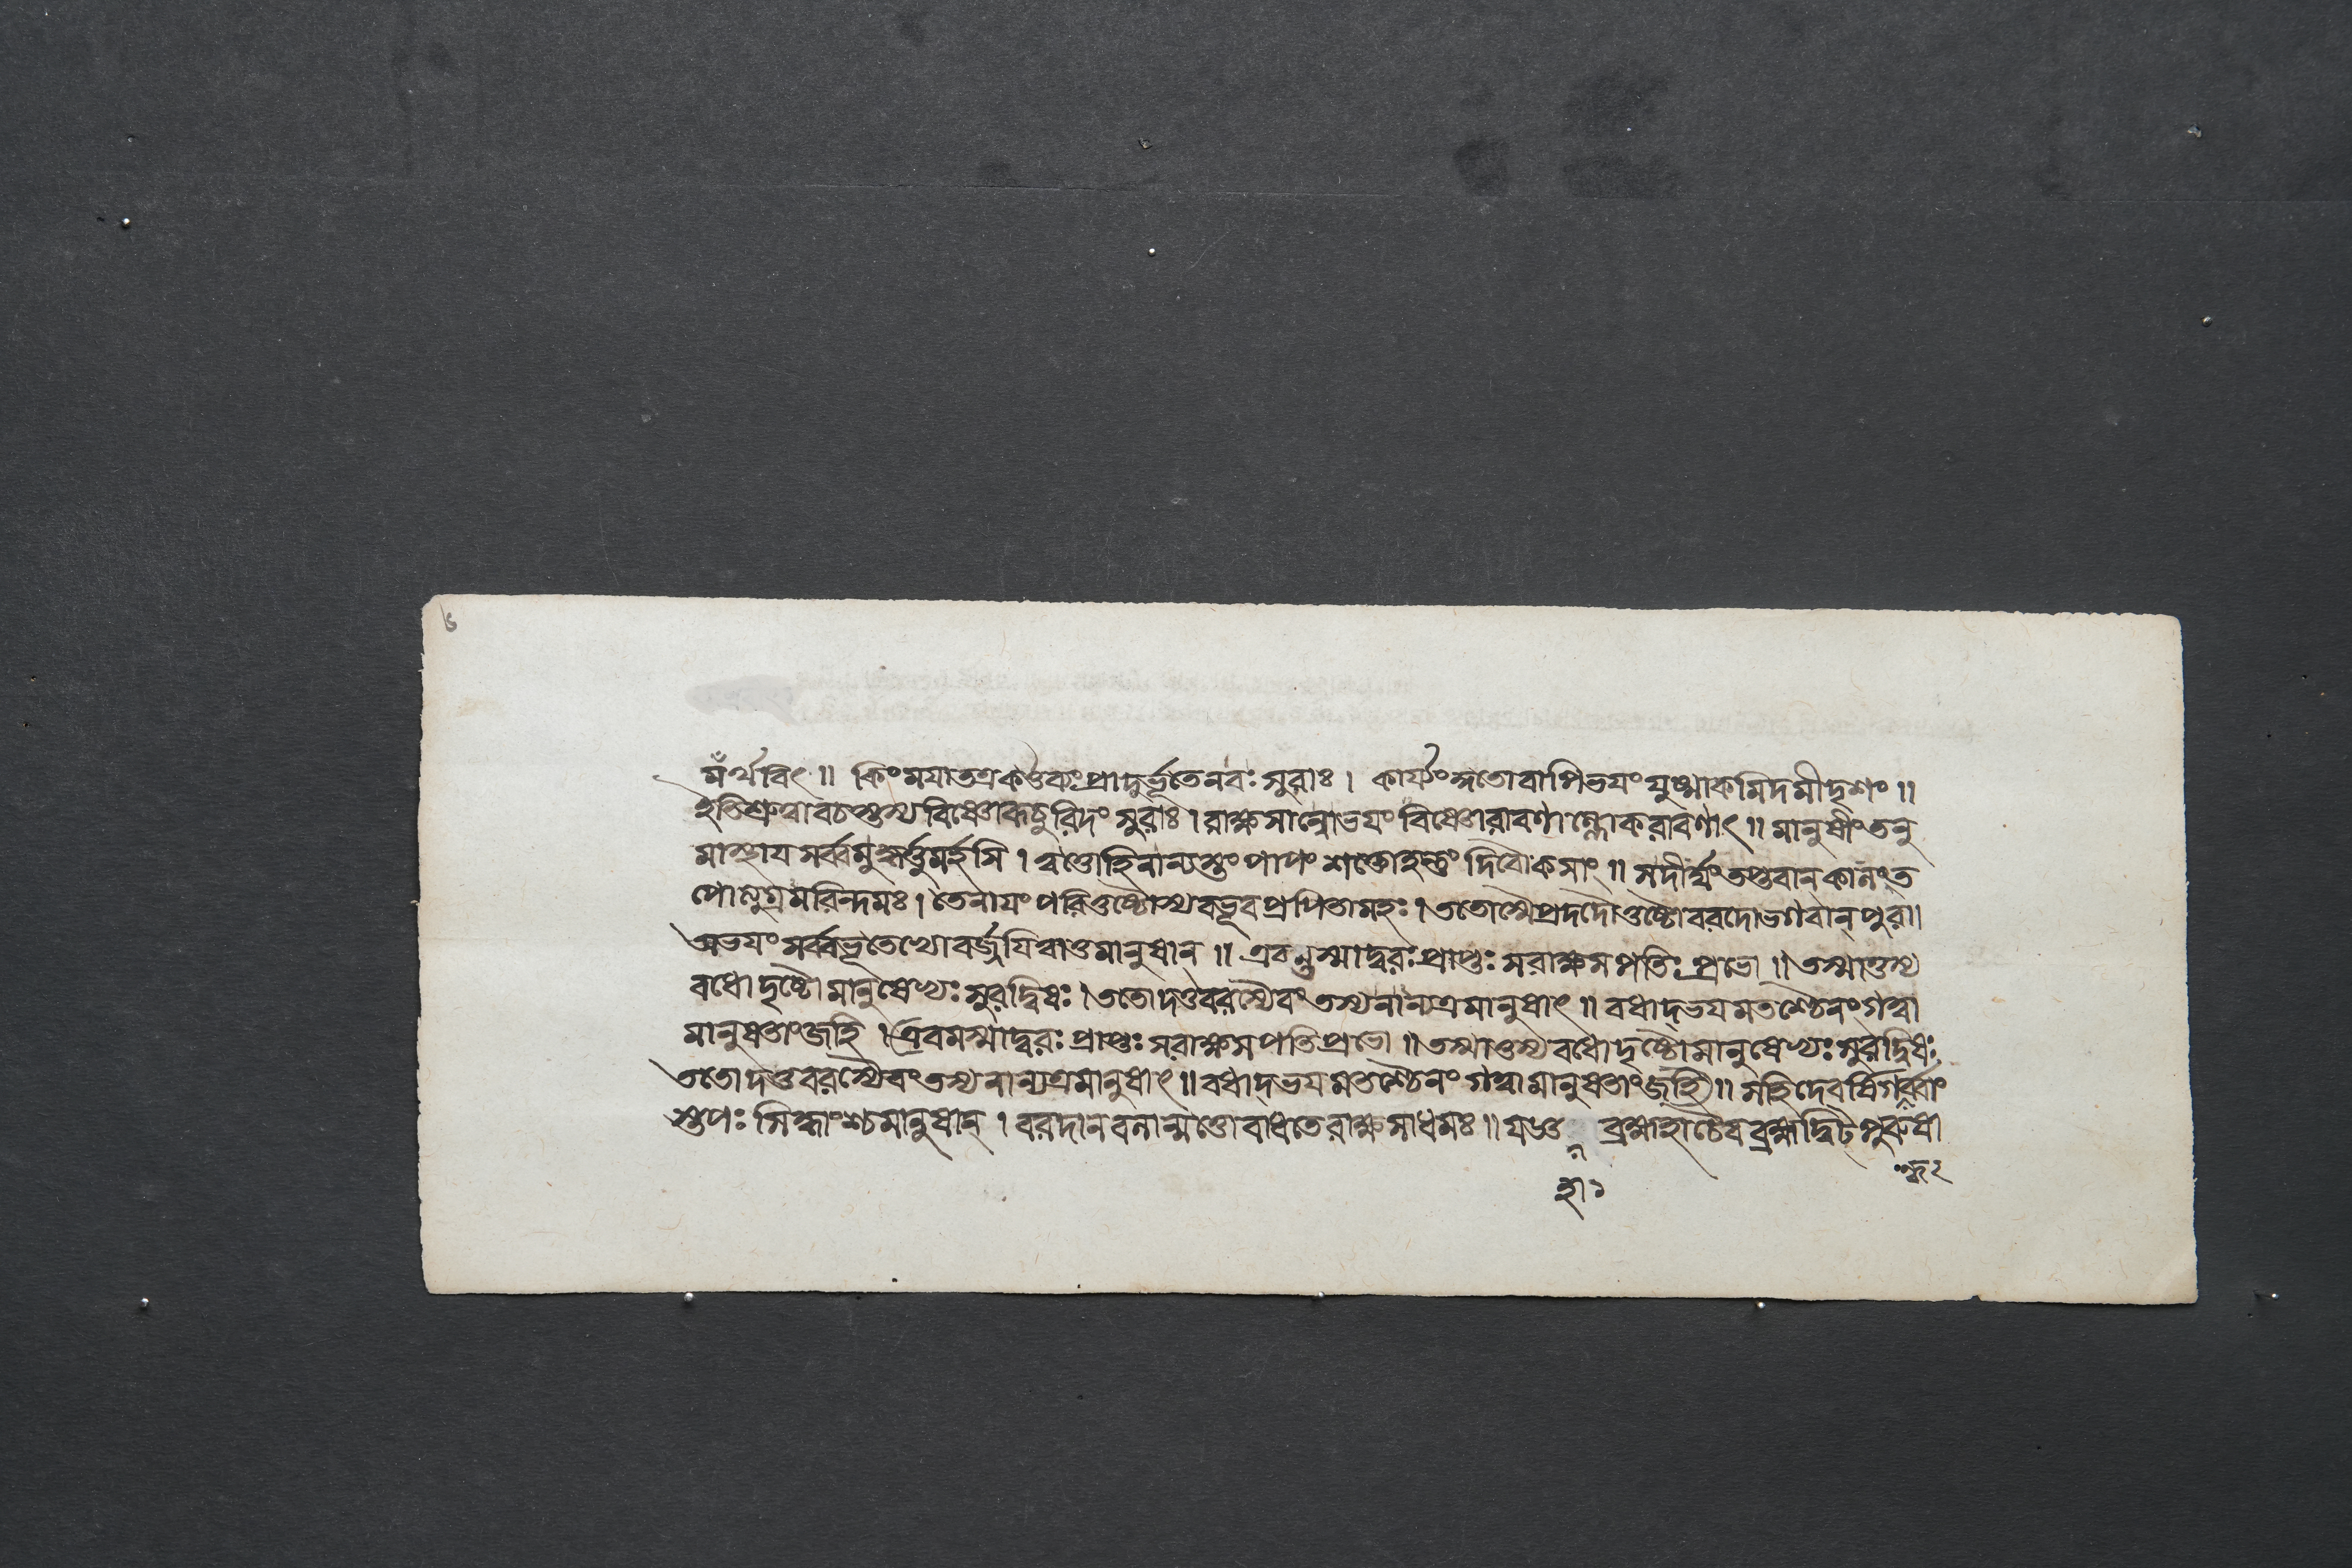 ৬
মঁর্থবিৎ ॥ কিংময়াতত্রকর্ত্তব্যংপ্রাদুর্ভূতেনবঃসুরাঃ । কার্য্যংসতোবাপিভয়ংযুষ্মাকমিদমীদৃশং ॥
ইতিশ্রুত্বাবচস্তস্যবিষ্ণোরূচুরিদংসুরাঃ । রাক্ষসান্নোভয়ংবিষ্ণোরাবণাল্লোকরাবণাৎ ॥ মানুষীংতনু
মাস্থায়সর্ব্বমুদ্ধর্ত্তুমর্হসি । ত্বত্তোহিনান্যস্তংপাপংশক্তোহন্তুংদিবৌকসাং ॥ সদীর্ঘংতপ্তবানকালংত
পোত্যুগ্রমরিন্দমঃ । তেনায়ংপরিতুষ্টোস্যবভূবপ্রপিতামহঃ । ততোস্মৈপ্রদদৌতুষ্টোবরদোভগবান্পুরা।
অভয়ংসর্ব্বভূতেভ্যোবর্জয়িত্বাতুমানুষান ॥ এবন্তস্মাদ্বরঃপ্রাপ্তঃসরাক্ষসপতিঃপ্রভো ॥ তস্মাত্তস্য
বধোদৃষ্টোমানুষেভ্যঃসুরদ্বিষঃ । ততোদত্তবরস্যৈবংতস্যনান্যত্রমানুষাৎ ॥ বধাদ্ভয়মতশ্চৈনংগত্বা
মানুষতাংজহি । এবমস্মাদ্বরঃপ্রাপ্তঃসরাক্ষসপতিপ্রভো ॥ তস্মাত্তস্যবধোদৃষ্টোমানুষেভ্যঃসুরদ্বিষঃ
ততোদত্তবরস্যৈবংতস্যনান্যত্রমানুষাৎ ॥ বধাদ্ভয়মতশ্চৈনংগত্বামানুষতাংজহি ॥ সহিদেবর্ষিগর্ব্বাং
স্তপঃসিদ্ধাংশ্চমানুষান্ । বরদানবলান্মত্তোবাধতেরাক্ষসাধমঃ ॥ যজ্ঞ ব্রহ্মহাচৈবব্রহ্মদ্বিট্পুরুষা
হা১